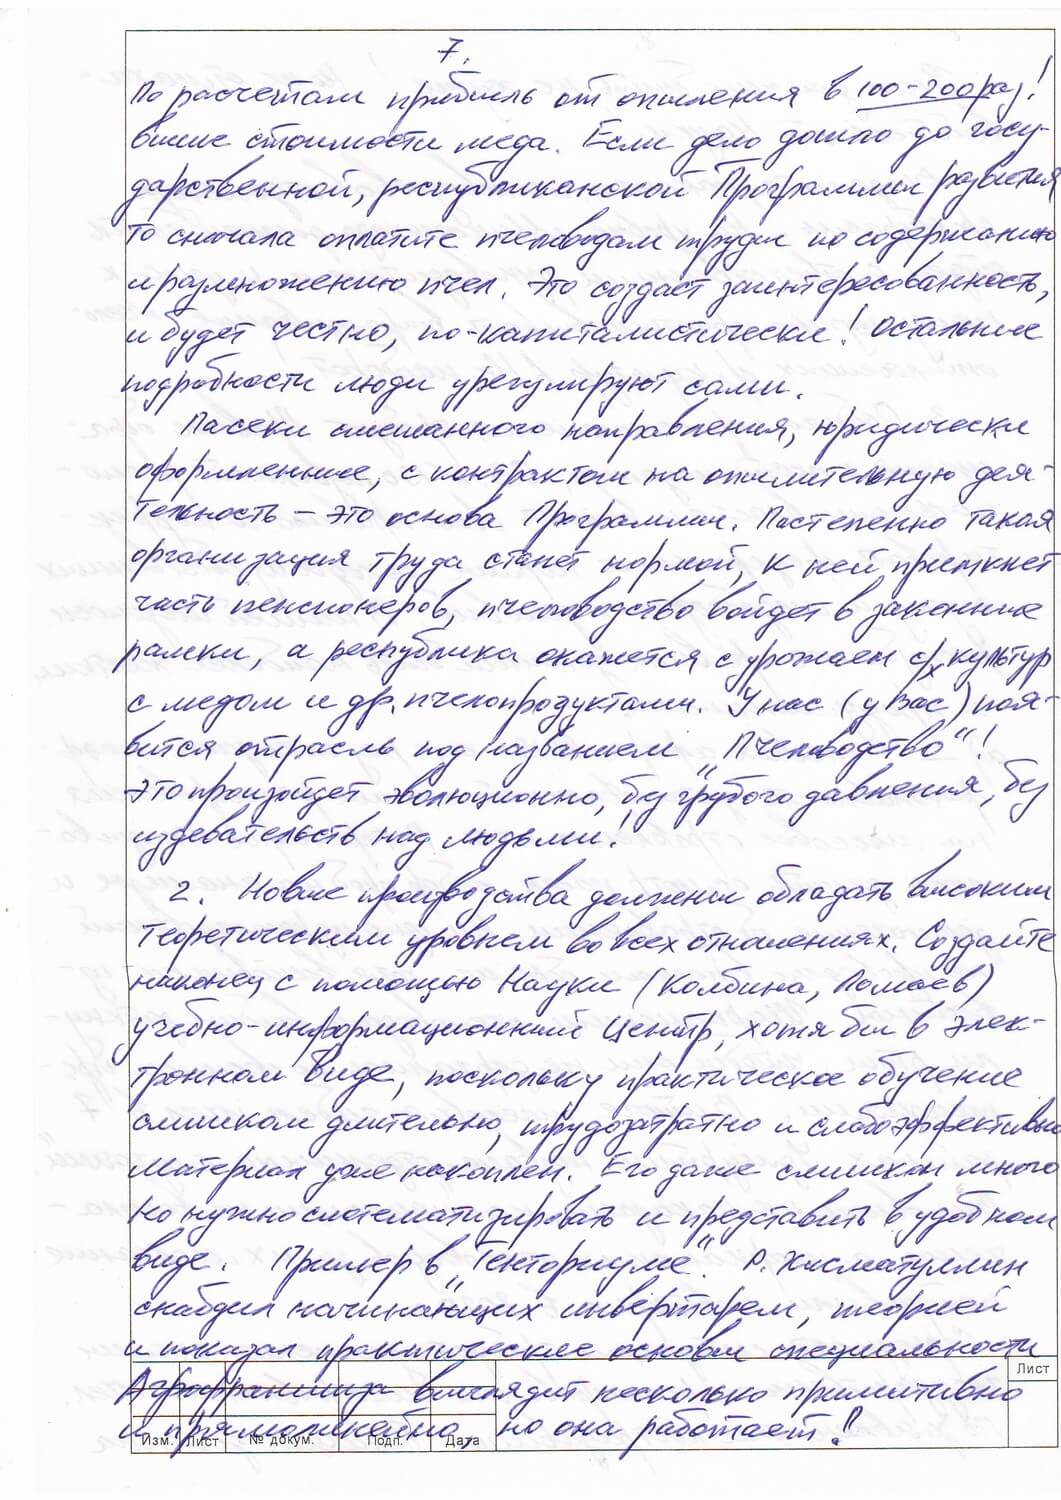 7.
По расчетам прибыль от опыления в 100-200 раз!
выше стоимости меда. Если дело дошло до госу-
дарственной, республиканской Программы развития
то сначала оплатите пчеловодам труды по содержанию
и размножению пчел. Это создаст заинтересованность,
и будет честно, по-капиталистически! Остальные
подробности люди урегулируют сами.
Пасеки смешанного направления, юридически
оформленные, с контрактом на опылительную дея-
тельность – это основа Программы. Постепенно такая
организация труда станет нормой, к ней примкнет
часть пенсионеров, пчеловодство войдет в законные
рамки, а республика окажется с урожаем с/х культур
с медом и др. пчелопродуктами. У нас (у Вас) поя-
вится отрасль под названием „Пчеловодство"!
Это произойдет эволюционно, без грубого давления, без
издевательств над людьми!
2. Новые производства должны обладать высоким
теоретическим уровнем во всех отношениях. Создайте
наконец с помощью Науки (Колбина, Ломаев)
учебно-информационный Центр, хотя бы в элек-
тронном виде, поскольку практическое обучение
слишком длительно, трудозатратно и слабоэффективно
Материал уже накоплен. Его даже слишком много
Но нужно систематизировать и представить в удобном
виде. Пример в „Тенториуме". Р. Хисматуллин
снабдил начинающих инвентарем, теорией
и показал практические основы специальности
Агрофраншиза выглядит несколько примитивно
и прямолинейно, но она работает!
Лист
Изм. Лист № докум. Подп. Дата